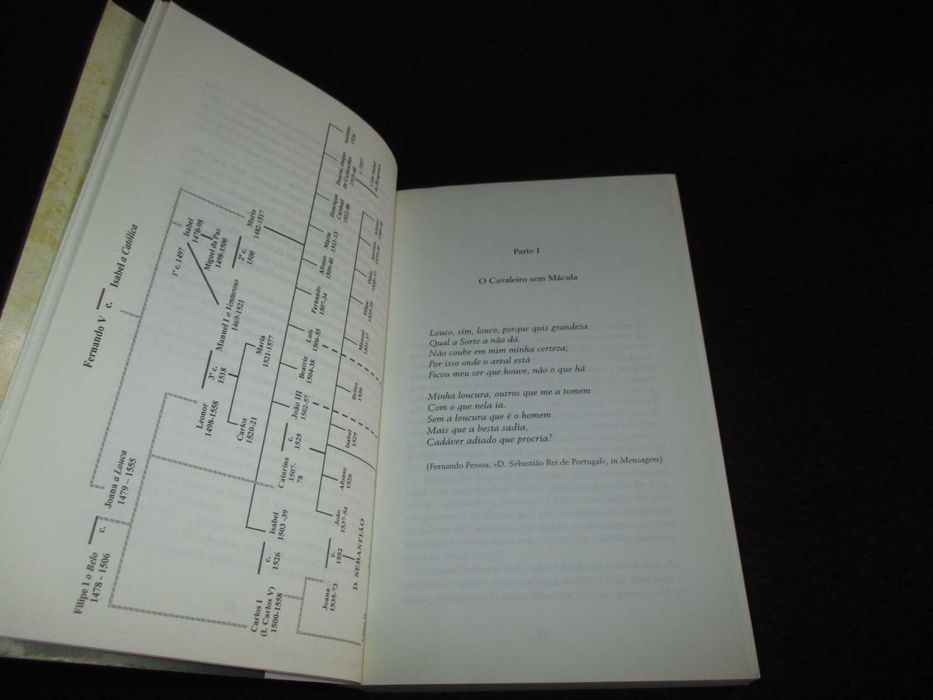 Fernando V c. Isabel a Católica
Filipe I o Belo
1478 - 1506
c.
Joana a Louca
1479 – 1555
1º c. 1497
Isabel
1470-98
Miguel da Paz
1498-1500
Manuel I o Venturoso
1469-1521
2º c.
1500
Maria
1482-1517
Leonor
1498-1558
3º c.
1518
Carlos
1520-21
Maria
1521-1577
Carlos I
(I. Carlos V)
1500-1558
c.
1526
Isabel
1503 -39
Catarina
1507-
78
c.
1525
João III
1502-57
Beatriz
1504-38
Luís
1506-55
Fernando
1507-34
Afonso
1509-40
Maria
1511-13
Henrique
Cardeal
1512-80
Duarte, Duque
de Guimarães
1515-40
António
1516
Joana
1535-73
c.
1552
João
1537-54
D. SEBASTIÃO
Afonso
1526
Isabel
1529
Beatriz
1530
Manuel
1531-37
Filipe
1533-39
Dinis
1535-37
António
1539-40
Parte I
O Cavaleiro sem Mácula
Louco, sim, louco, porque quis grandeza
Qual a Sorte a não dá.
Não coube em mim minha certeza;
Por isso onde o areal está
Ficou meu ser que houve, não o que há.
Minha loucura, outros que me a tomem
Com o que nela ia.
Sem a loucura que é o homem
Mais que a besta sadia,
Cadáver adiado que procria?
(Fernando Pessoa, «D. Sebastião Rei de Portugal», in Mensagem)